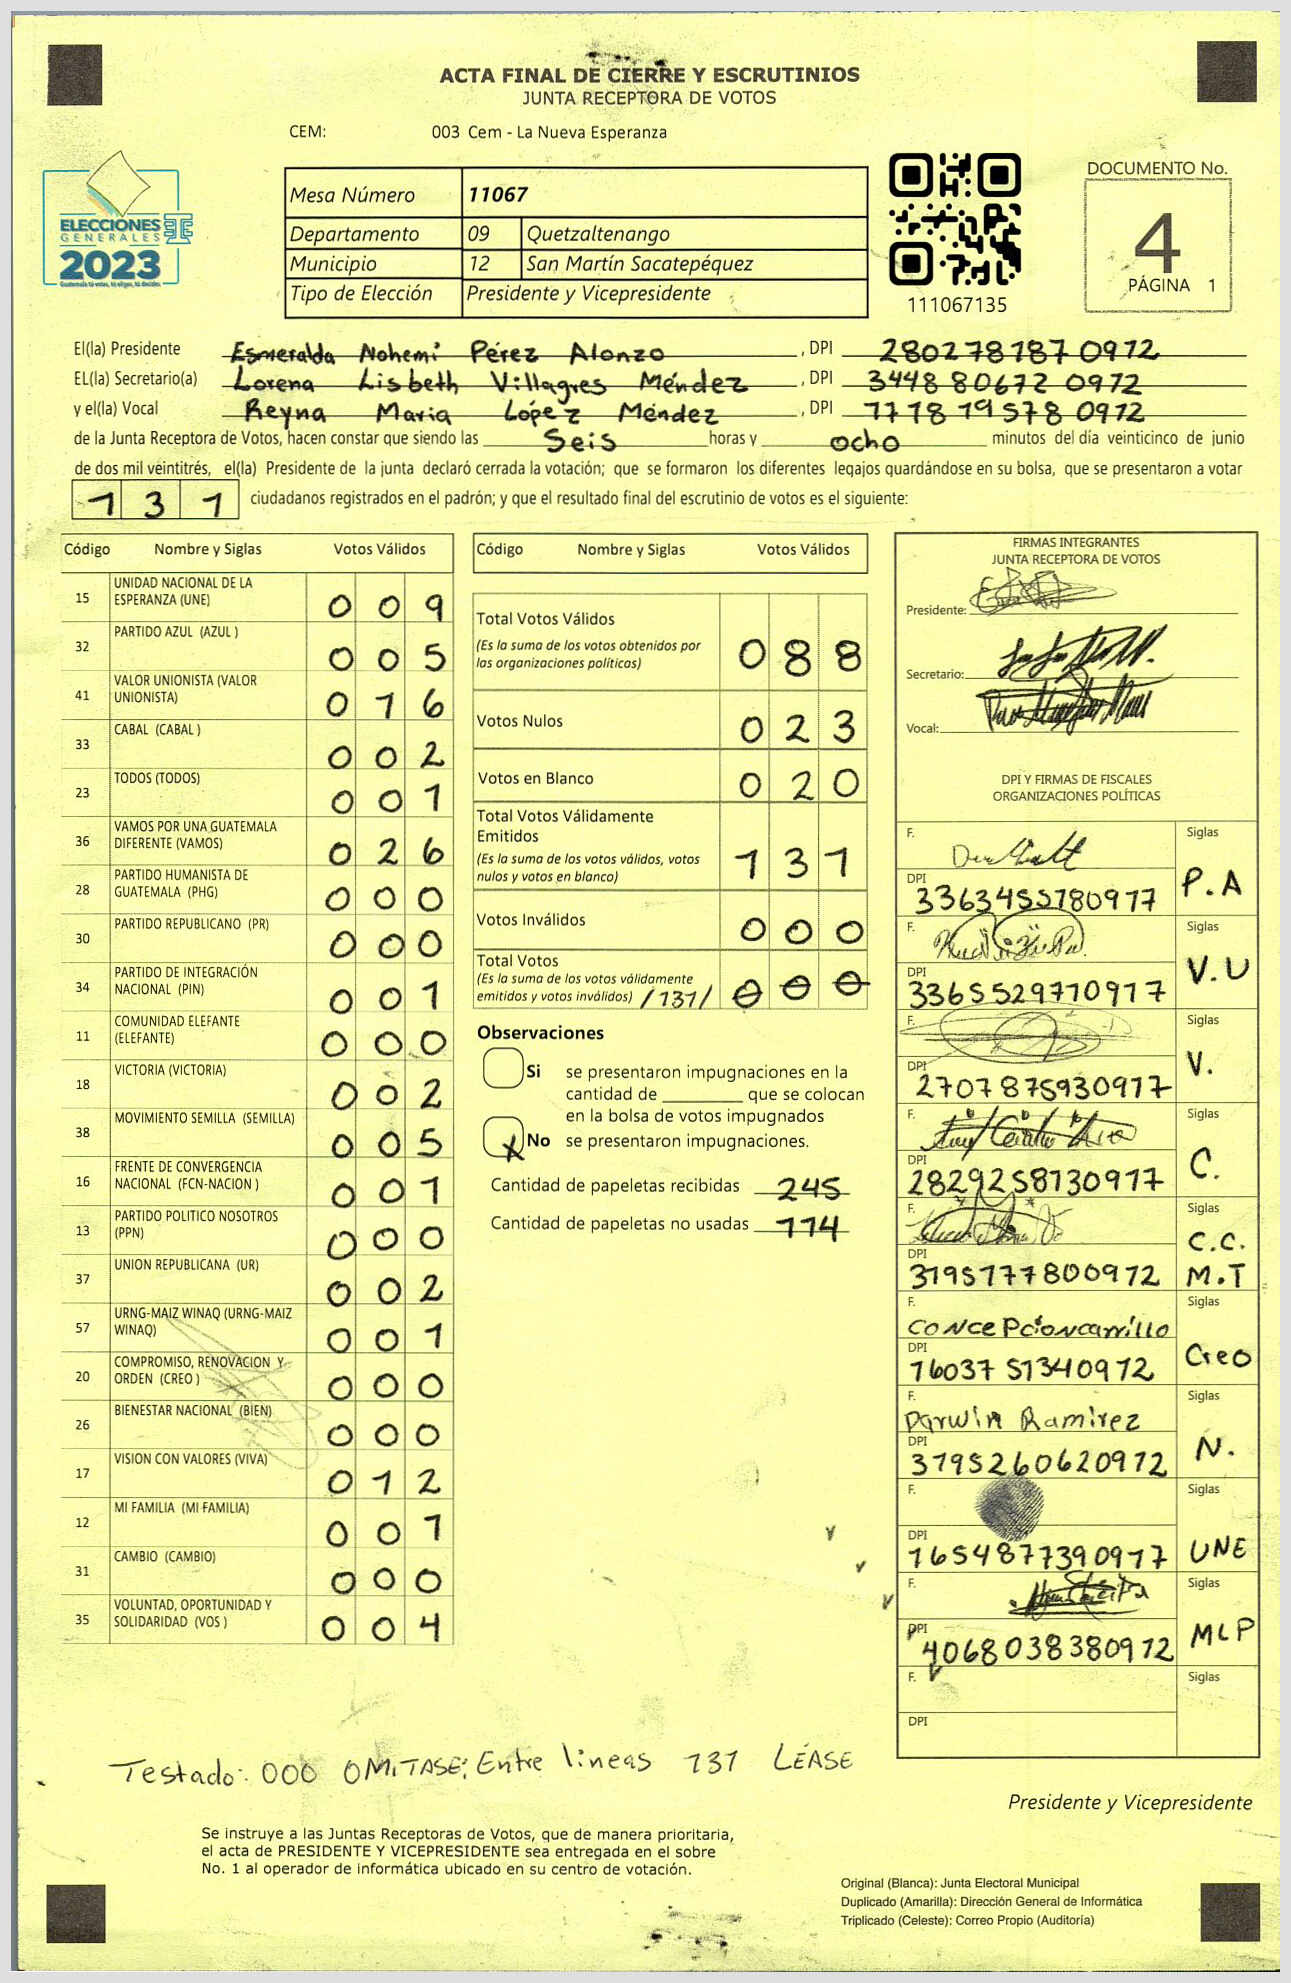 ACTA FINAL DE CIERRE Y ESCRUTINIOS
JUNTA RECEPTORA DE VOTOS
CEM: 003 Cem - La Nueva Esperanza
ELECCIONES
GENERALES
2023
Mesa Número 11067
Departamento 09 Quetzaltenango
Municipio 12 San Martín Sacatepéquez
Tipo de Elección Presidente y Vicepresidente
111067135
DOCUMENTO No.
4
PÁGINA 1
El(la) Presidente Esmeralda Nohemi Pérez Alonzo, DPI 280278787 0972
EL(la) Secretario(a) Lorena Lisbeth Villagres Méndez, DPI 3448 80672 0972
y el(la) Vocal Reyna Maria López Méndez, DPI 1778 79578 0972
de la Junta Receptora de Votos, hacen constar que siendo las Seis horas y ocho minutos del día veinticinco de junio
de dos mil veintitrés, el(la) Presidente de la junta declaró cerrada la votación; que se formaron los diferentes legajos guardándose en su bolsa, que se presentaron a votar
131 ciudadanos registrados en el padrón; y que el resultado final del escrutinio de votos es el siguiente:
Código Nombre y Siglas Votos Válidos
15 UNIDAD NACIONAL DE LA ESPERANZA (UNE) 009
32 PARTIDO AZUL (AZUL ) 005
41 VALOR UNIONISTA (VALOR UNIONISTA) 016
33 CABAL (CABAL ) 002
23 TODOS (TODOS) 001
36 VAMOS POR UNA GUATEMALA DIFERENTE (VAMOS) 026
28 PARTIDO HUMANISTA DE GUATEMALA (PHG) 000
30 PARTIDO REPUBLICANO (PR) 000
34 PARTIDO DE INTEGRACIÓN NACIONAL (PIN) 001
11 COMUNIDAD ELEFANTE (ELEFANTE) 000
18 VICTORIA (VICTORIA) 002
38 MOVIMIENTO SEMILLA (SEMILLA) 005
16 FRENTE DE CONVERGENCIA NACIONAL (FCN-NACION ) 001
13 PARTIDO POLITICO NOSOTROS (PPN) 000
37 UNION REPUBLICANA (UR) 002
57 URNG-MAIZ WINAQ (URNG-MAIZ WINAQ) 001
20 COMPROMISO, RENOVACION Y ORDEN (CREO ) 000
26 BIENESTAR NACIONAL (BIEN) 000
17 VISION CON VALORES (VIVA) 012
12 MI FAMILIA (MI FAMILIA) 001
31 CAMBIO (CAMBIO) 000
35 VOLUNTAD, OPORTUNIDAD Y SOLIDARIDAD (VOS ) 004
Código Nombre y Siglas Votos Válidos
Total Votos Válidos 088
(Es la suma de los votos obtenidos por
las organizaciones políticas)
Votos Nulos 023
Votos en Blanco 020
Total Votos Válidamente
Emitidos 131
(Es la suma de los votos válidos, votos
nulos y votos en blanco)
Votos Inválidos 000
Total Votos
(Es la suma de los votos válidamente
emitidos y votos inválidos) /131/ 000
Observaciones
Si se presentaron impugnaciones en la
cantidad de ________ que se colocan
en la bolsa de votos impugnados
X No se presentaron impugnaciones.
Cantidad de papeletas recibidas 245
Cantidad de papeletas no usadas 114
FIRMAS INTEGRANTES
JUNTA RECEPTORA DE VOTOS
Presidente:
Secretario:
Vocal:
DPI Y FIRMAS DE FISCALES
ORGANIZACIONES POLÍTICAS
F. Siglas P.A
DPI 3363455780917
F. Siglas V.U
DPI 3365529710917
F. Siglas V.
DPI 2707875930917
F. Siglas C.
DPI 2829258130917
F. Siglas C.C. M.T
DPI 3195177800972
F. concepcioncarrillo Siglas Creo
DPI 16037 51340972
F. Darwin Ramirez Siglas N.
DPI 3195260620972
F. Siglas UNE
DPI 1654877390917
F. Siglas MLP
DPI 4068038380972
F. Siglas
DPI
Testado: 000 OMITASE; Entre lineas 131 LÉASE
Presidente y Vicepresidente
Se instruye a las Juntas Receptoras de Votos, que de manera prioritaria,
el acta de PRESIDENTE Y VICEPRESIDENTE sea entregada en el sobre
No. 1 al operador de informática ubicado en su centro de votación.
Original (Blanca): Junta Electoral Municipal
Duplicado (Amarilla): Dirección General de Informática
Triplicado (Celeste): Correo Propio (Auditoría)